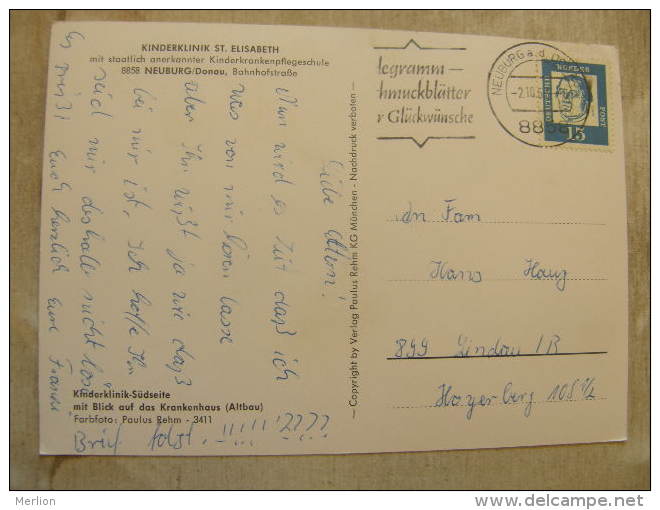 KINDERKLINIK ST. ELISABETH
mit staatlich anerkannter Kinderkrankenpflegeschule
8858 NEUBURG/Donau, Bahnhofstraße
Liebe Eltern!
Nun wird es Zeit daß ich
was von mir hören lasse
aber Ihr wißt ja wie das
bei mir ist. Ich hoffe Ihr
seid mir deshalb nicht böse
Es grüßt Euch herzlich Eure
Kinderklinik-Südseite
mit Blick auf das Krankenhaus (Altbau)
Farbfoto: Paulus Rehm - 3411
Brief folgt. !!!!!!????
— Copyright by Verlag Paulus Rehm KG München - Nachdruck verboten —
legramm —
hmuckblätter
r Glückwünsche
NEUBURG a.d.
-2.10.6
8858
DEUTSCHE
POST
15
An Fam
Hans Haug
899 Lindau /B
Hoyerberg 108 1/2
Merlion
www.delcampe.net